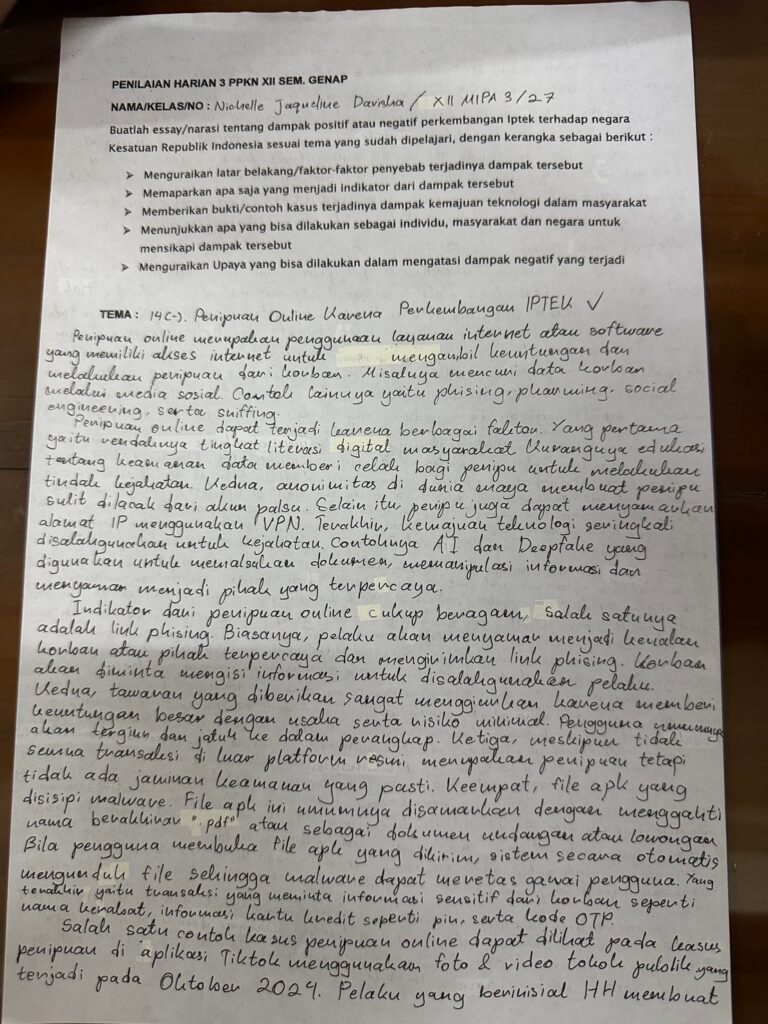 PENILAIAN HARIAN 3 PPKN XII SEM. GENAP
NAMA/KELAS/NO : Nichelle Jaqueline Davisha / XII MIPA 3/27
Buatlah essay/narasi tentang dampak positif atau negatif perkembangan Iptek terhadap negara
Kesatuan Republik Indonesia sesuai tema yang sudah dipelajari, dengan kerangka sebagai berikut :
➤ Menguraikan latar belakang/faktor-faktor penyebab terjadinya dampak tersebut
➤ Memaparkan apa saja yang menjadi indikator dari dampak tersebut
➤ Memberikan bukti/contoh kasus terjadinya dampak kemajuan teknologi dalam masyarakat
➤ Menunjukkan apa yang bisa dilakukan sebagai individu, masyarakat dan negara untuk
mensikapi dampak tersebut
➤ Menguraikan Upaya yang bisa dilakukan dalam mengatasi dampak negatif yang terjadi
TEMA : 14(-). Penipuan Online Karena Perkembangan IPTEK ✓
Penipuan online merupakan penggunaan layanan internet atau software
yang memiliki akses internet untuk mengambil keuntungan dan
melakukan penipuan dari korban. Misalnya mencuri data korban
melalui media sosial. Contoh lainnya yaitu phising, pharming, social
engineering, serta sniffing.
Penipuan online dapat terjadi karena berbagai faktor. Yang pertama
yaitu rendahnya tingkat literasi digital masyarakat. Kurangnya edukasi
tentang keamanan data memberi celah bagi penipu untuk melakukan
tindak kejahatan. Kedua, anonimitas di dunia maya membuat penipu
sulit dilacak dari akun palsu. Selain itu, penipu juga dapat menyamarkan
alamat IP menggunakan VPN. Terakhir, kemajuan teknologi seringkali
disalahgunakan untuk kejahatan. Contohnya AI dan Deepfake yang
digunakan untuk memalsukan dokumen, memanipulasi informasi dan
menyamar menjadi pihak yang terpercaya.
Indikator dari penipuan online cukup beragam, salah satunya
adalah link phising. Biasanya, pelaku akan menyamar menjadi kenalan
korban atau pihak terpercaya dan mengirimkan link phising. Korban
akan diminta mengisi informasi untuk disalahgunakan pelaku.
Kedua, tawaran yang diberikan sangat menggiurkan karena memberi
keuntungan besar dengan usaha serta risiko minimal. Pengguna umumnya
akan tergiur dan jatuh ke dalam perangkap. Ketiga, meskipun tidak
semua transaksi di luar platform resmi merupakan penipuan tetapi
tidak ada jaminan keamanan yang pasti. Keempat, file apk yang
disisipi malware. File apk ini umumnya disamarkan dengan mengganti
nama berakhiran ".pdf" atau sebagai dokumen undangan atau lowongan
Bila pengguna membuka file apk yang dikirim, sistem secara otomatis
mengunduh file sehingga malware dapat meretas gawai pengguna. Yang
terakhir yaitu transaksi yang meminta informasi sensitif dari korban seperti
nama kerabat, informasi kartu kredit seperti pin, serta kode OTP.
Salah satu contoh kasus penipuan online dapat dilihat pada kasus
penipuan di aplikasi Tiktok menggunakan foto & video tokoh publik yang
terjadi pada Oktober 2024. Pelaku yang berinisial HH membuat